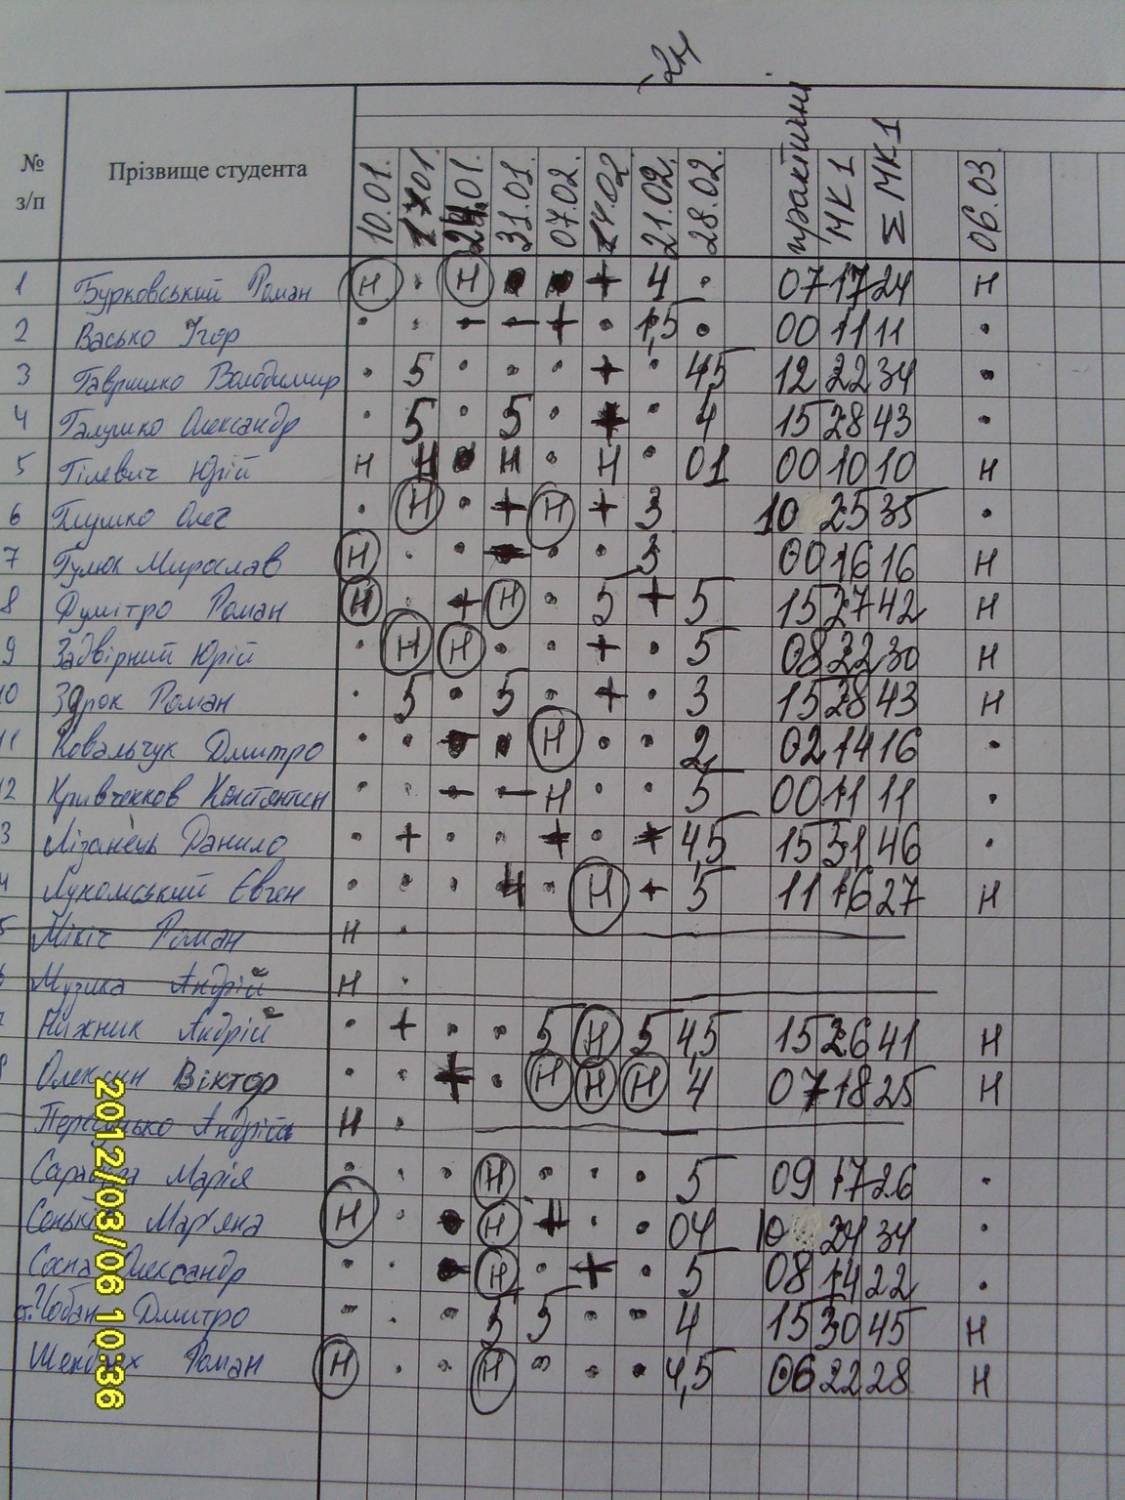 2н
№ з/п Прізвище студента 10.01. 17.01. 24.01. 31.01. 07.02. 14.02 21.02. 28.02. практичні МК1 Σ МК1 06.03
1 Бурковський Роман Н . Н • • + 4 . 07 17 24 Н
2 Васько Ігор . . – – + . 1,5 . 00 11 11 .
3 Гавришко Володимир . 5 . . . + . 4,5 12 22 34 .
4 Галушко Олександр . 5 . 5 . + . 4 15 28 43 .
5 Гілевич Юрій Н Н • Н . Н . 01 00 10 10 Н
6 Глушко Олег . Н . + Н + 3 10 25 35 .
7 Гулюк Мирослав Н . . • . . 3 00 16 16 Н
8 Думітро Роман Н . + Н . 5 + 5 15 27 42 Н
9 Задвірний Юрій . Н Н . . + . 5 08 22 30 Н
10 Здрок Роман . 5 . 5 . + . 3 15 28 43 Н
11 Ковальчук Дмитро . . • . Н . . 2 02 14 16 .
12 Костянтин . . – – Н . . 5 00 11 11 .
3 Лізанець Данило . + . . + . + 4,5 15 31 46 .
4 Лукомський Євген . . . 4 . Н + 5 11 16 27 Н
5 Мікіч Роман Н .
Музика Андрій Н .
Нижник Андрій . + . . 5 Н 5 4,5 15 26 41 Н
Віктор . . + . Н Н Н 4 07 18 25 Н
Андрій Н .
Марія . . . Н . . . 5 09 17 26 .
Мар'яна Н . • Н + . . 04 10 24 34 .
Сосна Олександр . . • Н . + . 5 08 14 22 .
Чобан Дмитро . . . 5 5 . . 4 15 30 45 Н
Роман Н . . Н . . . 4,5 06 22 28 Н
2012/03/06 10:36